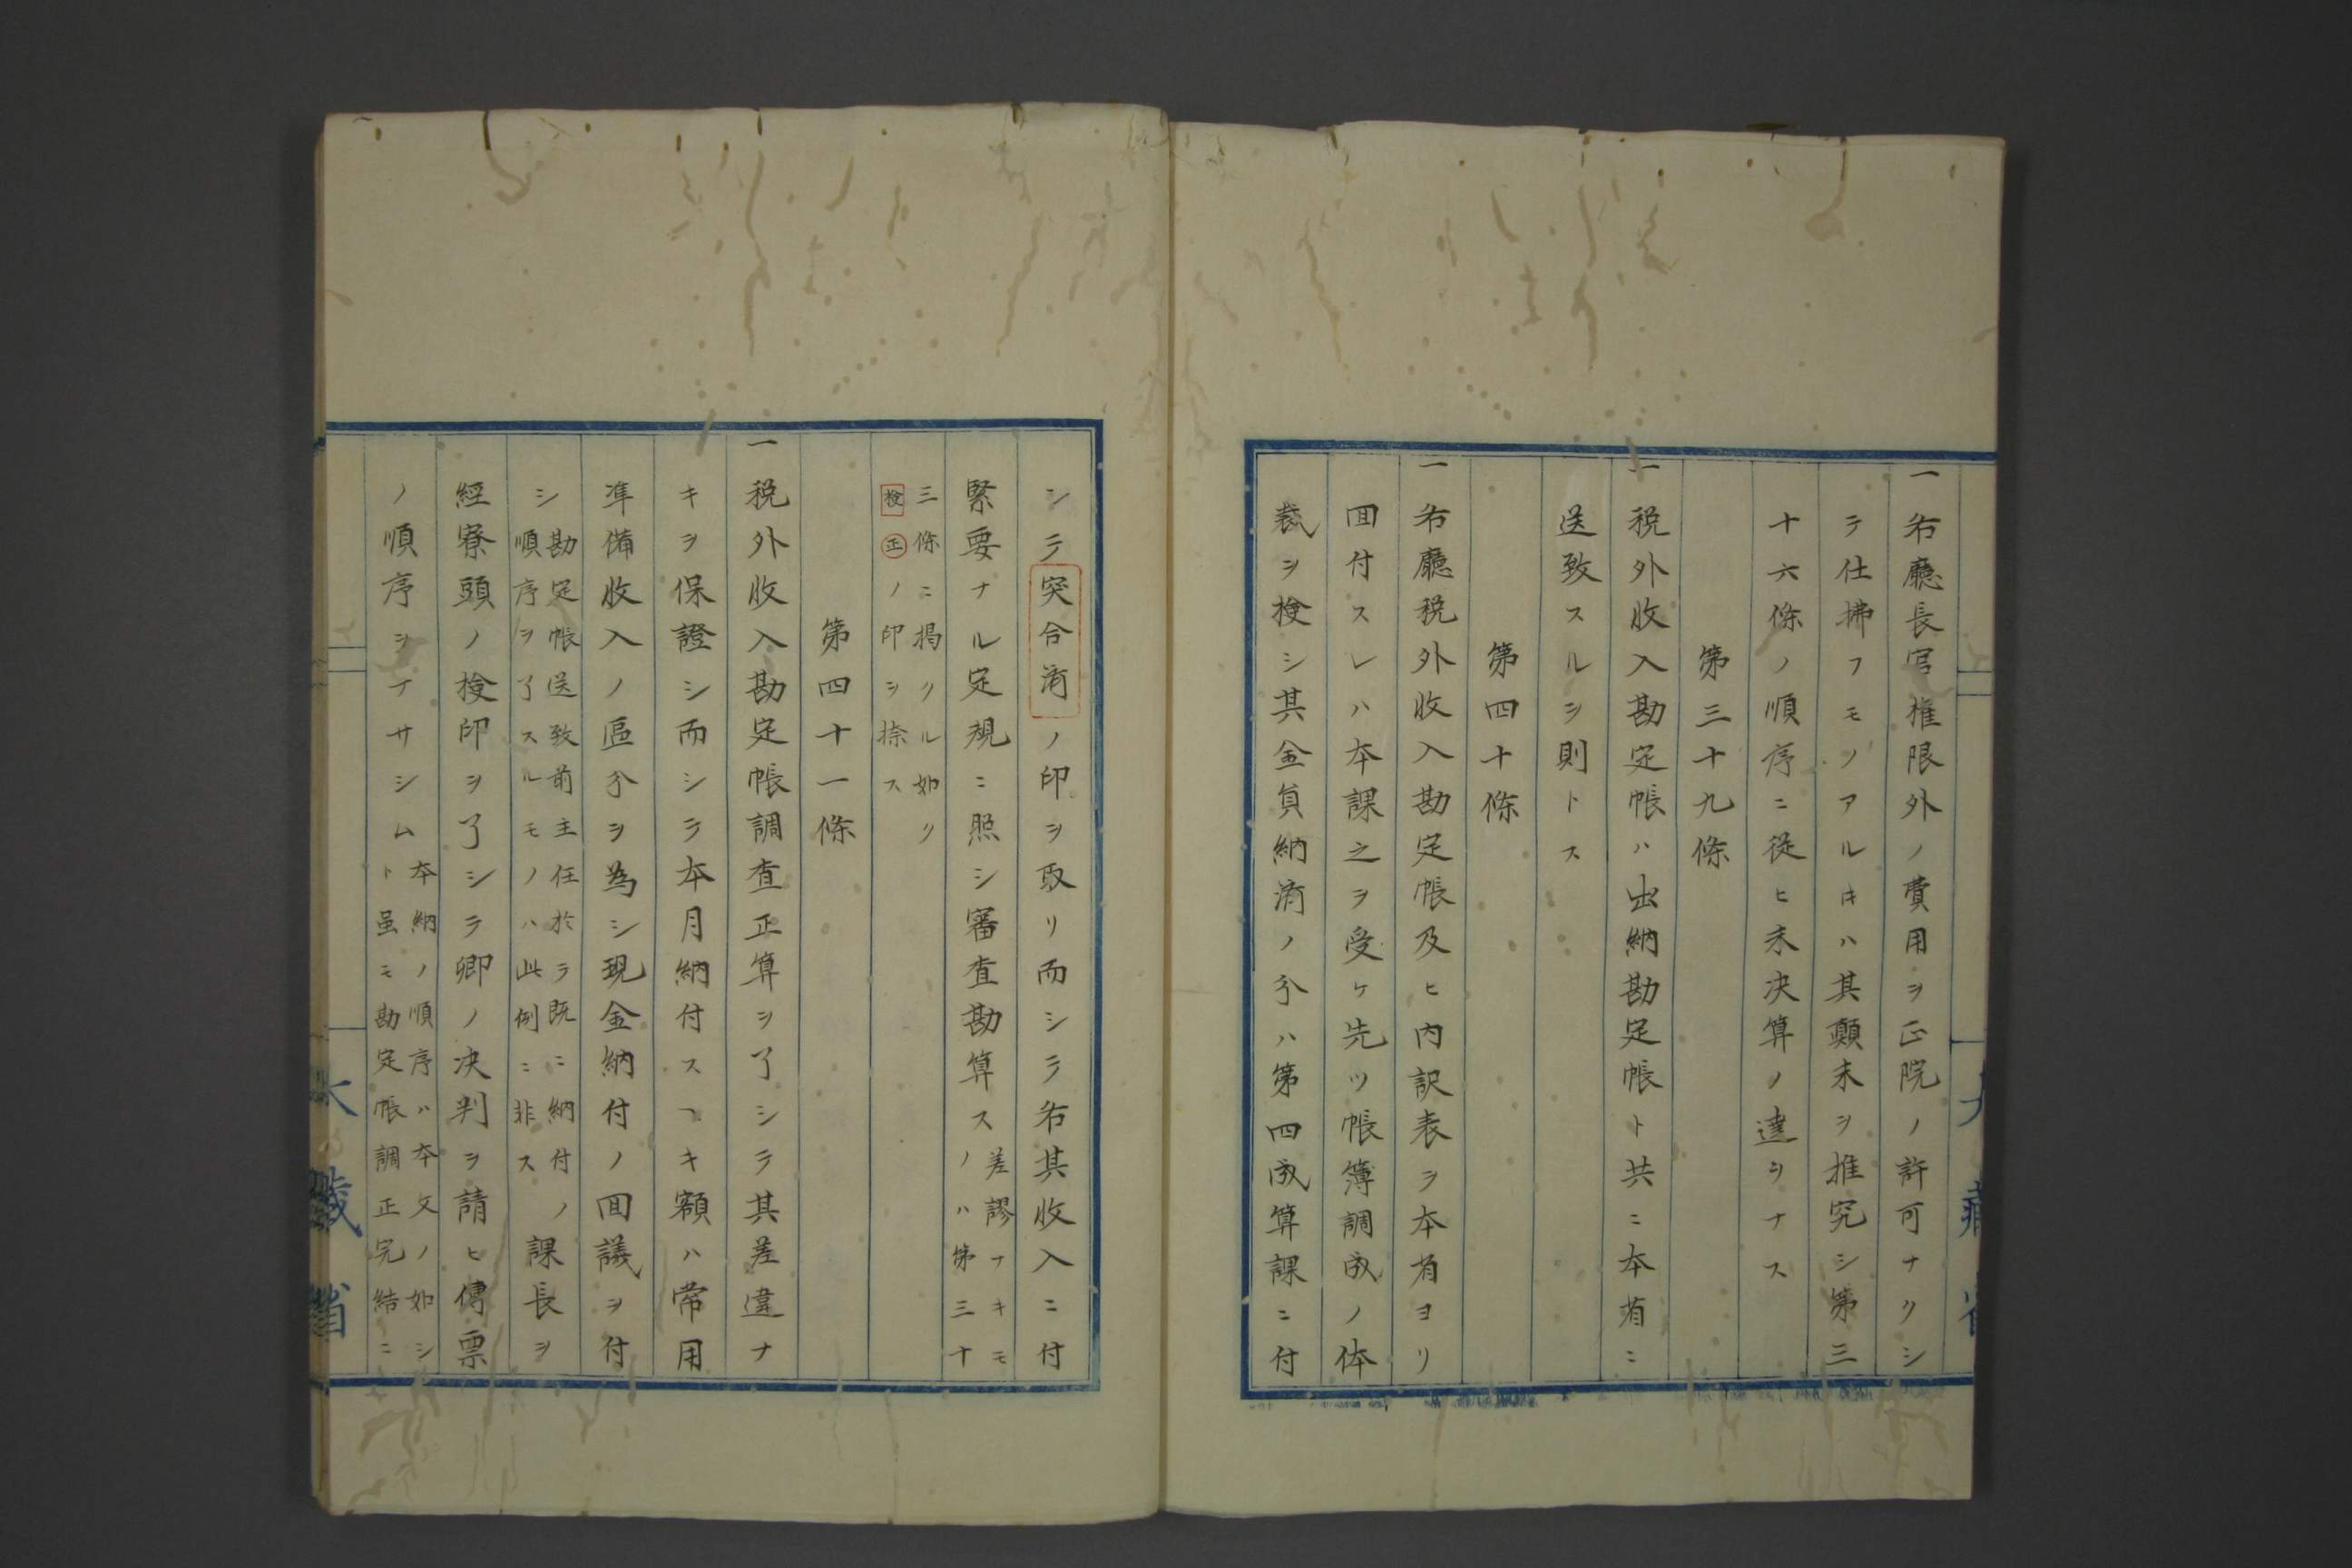 一各廳長官權限外ノ費用ヲ正院ノ許可ナクシ
テ仕拂フモノアルキハ其顛末ヲ推究シ第三
十六條ノ順序ニ從ヒ未决算ノ達ヲナス
第三十九條
一税外收入勘定帳ハ出納勘定帳ト共ニ本省ニ
送致スルヲ則トス
第四十條
一各廳税外收入勘定帳及ヒ内訳表ヲ本省ヨリ
回付スレハ本課之ヲ受ケ先ツ帳簿調成ノ体
裁ヲ檢シ其金員納濟ノ分ハ第四成算課ニ付
シテ突合濟ノ印ヲ取リ而シテ各其收入ニ付
緊要ナル定規ニ照シ審査勘算ス
差謬ナキモ
ノハ第三十
三條ニ掲クル如ク
檢正ノ印ヲ捺ス
第四十一條
一税外收入勘定帳調査正算ヲ了シテ其差違ナ
キヲ保證シ而シテ本月納付スヘキ額ハ常用
準備收入ノ區分ヲ為シ現金納付ノ回議ヲ付
シ
勘定帳送致前主任於テ既ニ納付ノ
順序ヲ了スルモノハ此例ニ非ス
課長ヲ
經寮頭ノ檢印ヲ了シテ卿ノ决判ヲ請ヒ傳票
ノ順序ヲナサシム
本納ノ順序ハ本文ノ如シ
ト虽モ勘定帳調正完結ニ
大藏省
大藏省